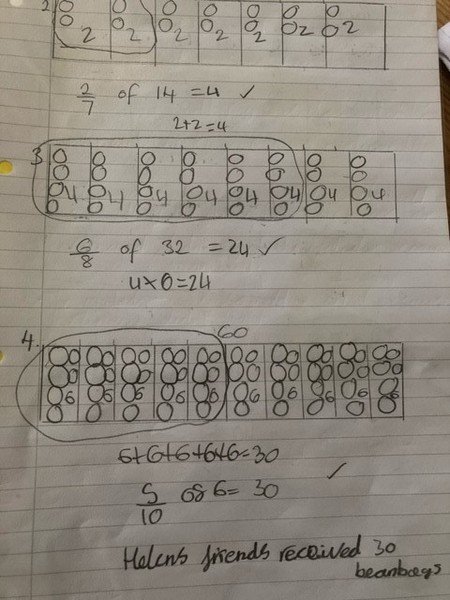 2. 2 2 2 2 2 2 2
2/7 of 14 = 4 ✓
2+2=4
3 4 4 4 4 4 4 4 4
6/8 of 32 = 24 ✓
4×6=24
60
4. 6 6 6 6 6 6 6 6 6 6
6+6+6+6+6=30
5/10 of 6= 30 ✓
Helens friends received 30
beanbags